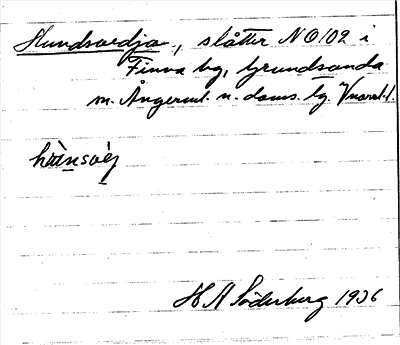 Hundsvedja, slåtter NO102 i
Finna by, Grundsunda
sn. Ångerml. n. doms. tg. Vnorrl. l.
H A Söderberg 1936